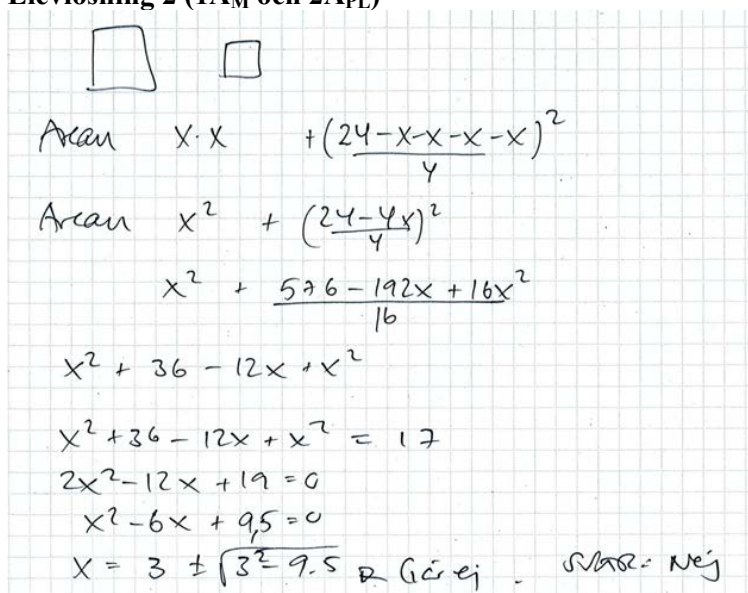 Elevlösning 2 (1A_M och 2A_PL)
Arean x·x +(24-x-x-x-x / 4)²
Arean x² + (24-4x / 4)²
x² + 576-192x+16x² / 16
x² + 36 - 12x + x²
x² + 36 - 12x + x² = 17
2x² - 12x + 19 = 0
x² - 6x + 9,5 = 0
x = 3 ± √3² - 9.5 Går ej. SVAR: Nej